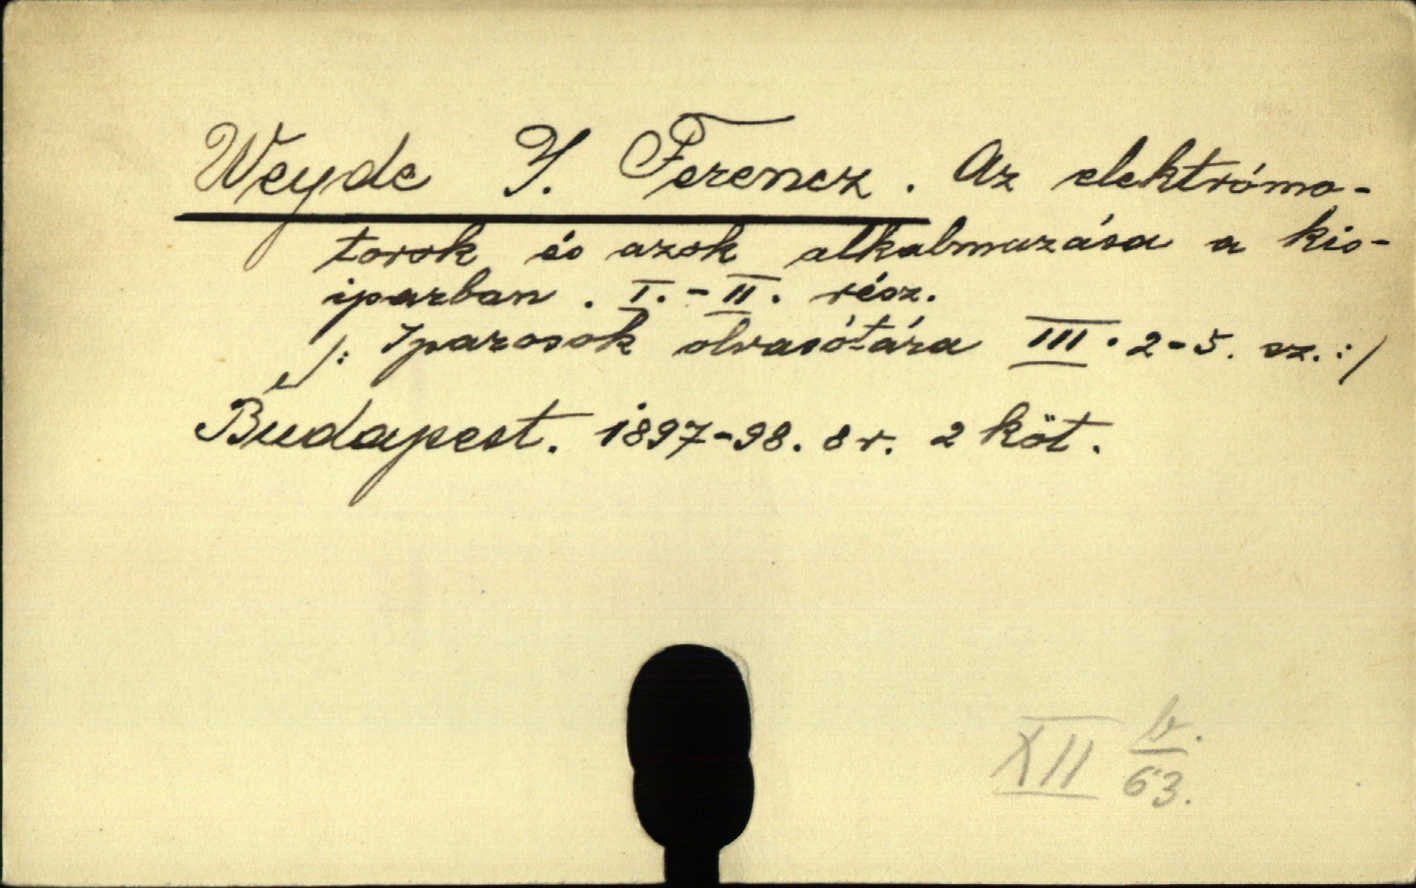 Weyde J. Ferencz. Az elektrómo-
torok és azok alkalmazása a kis-
iparban. I.-II. rész.
/: Iparosok olvasótára III. 2-5. sz. :/
Budapest. 1897-98. 8r. 2 köt.
XII b.
63.